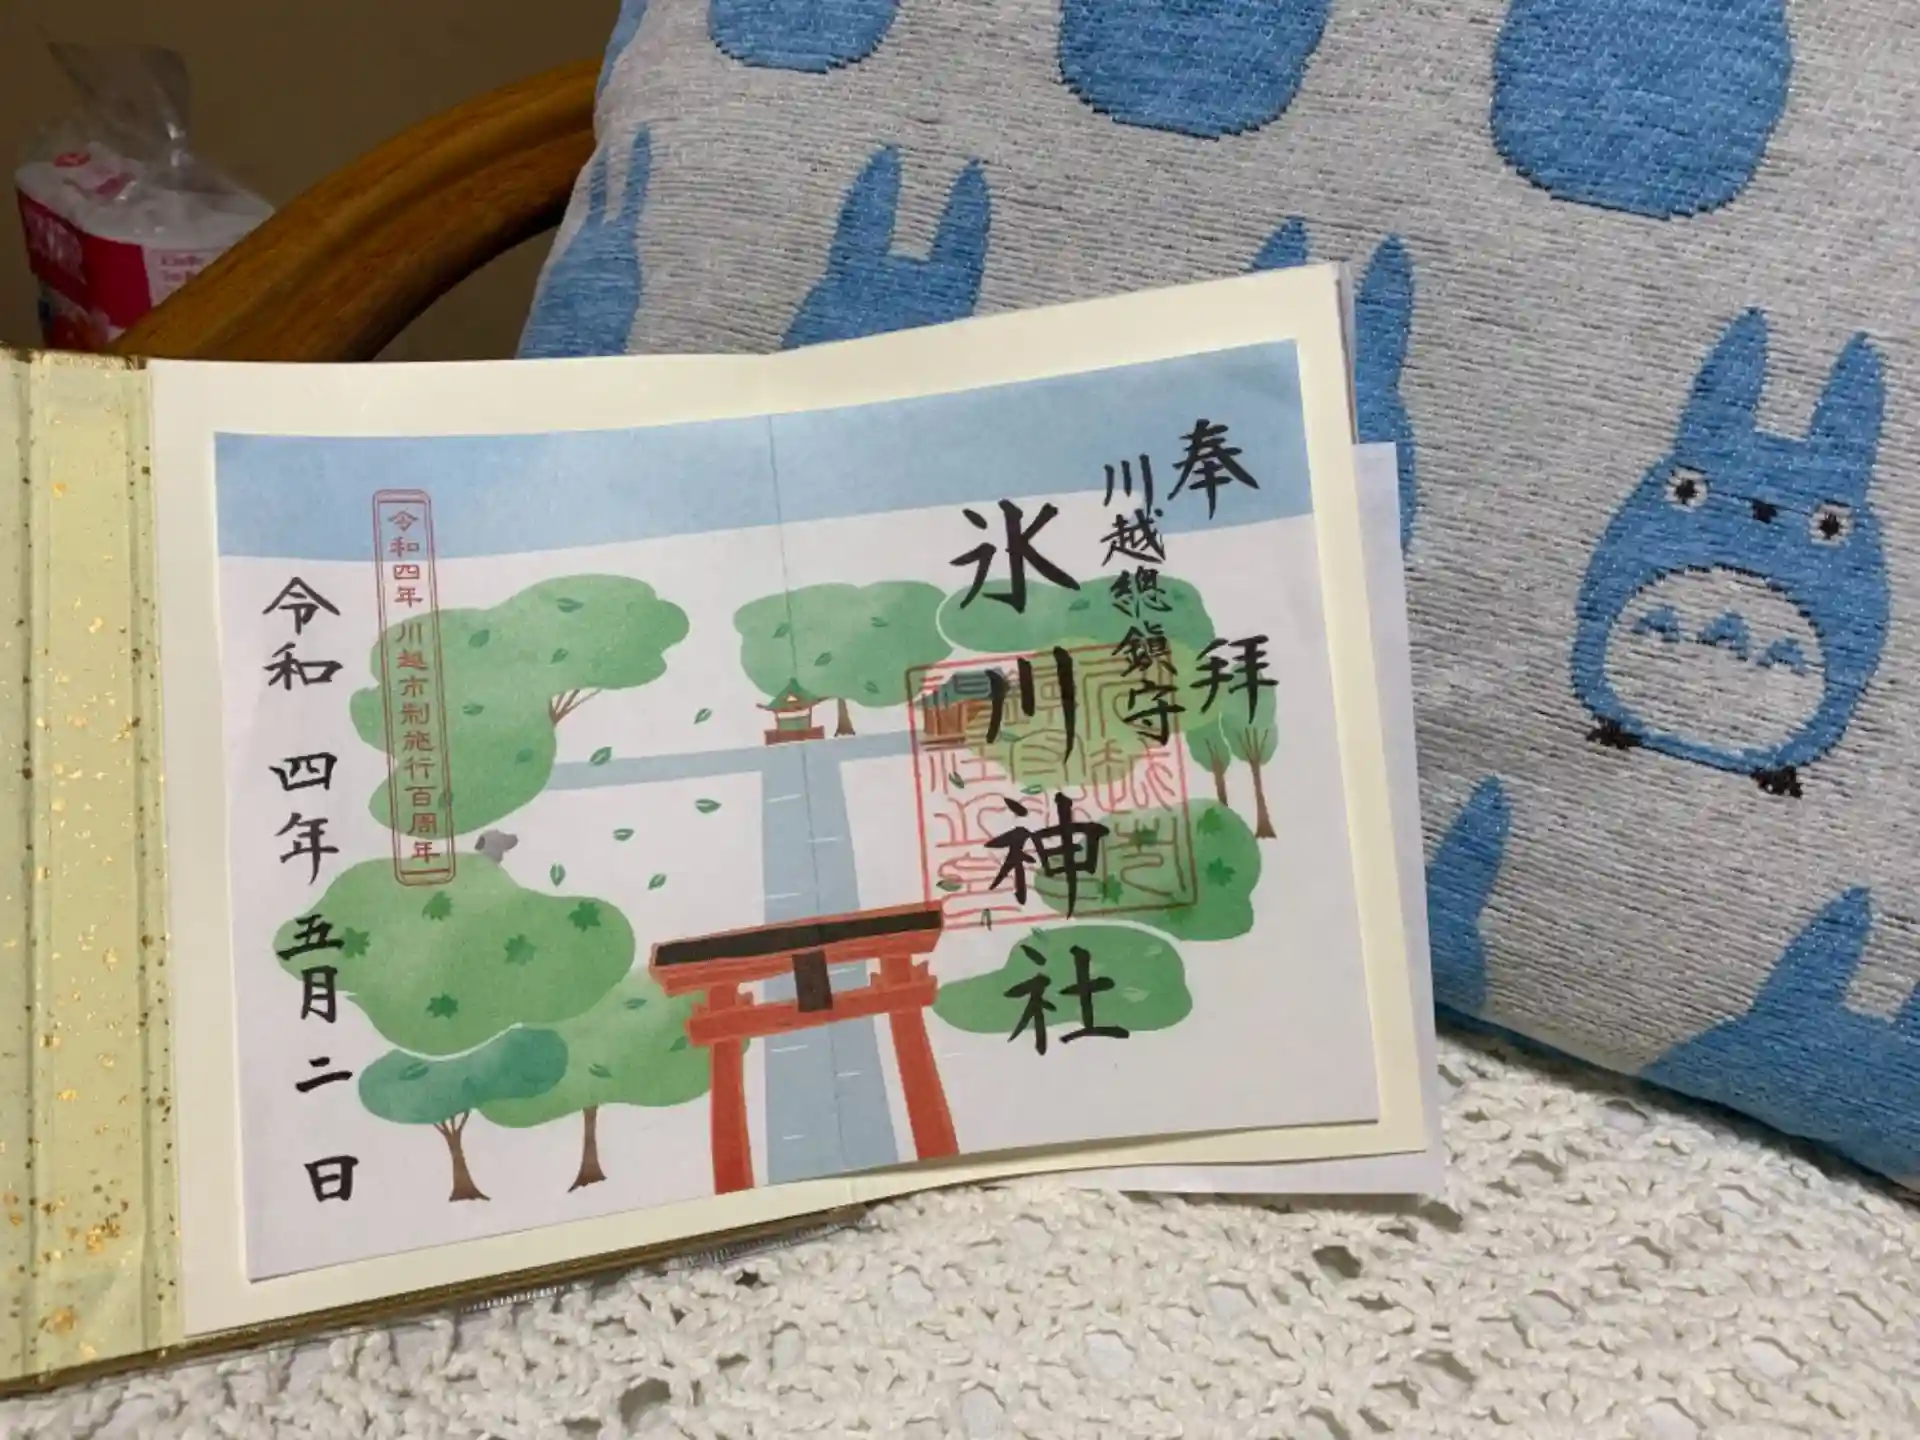 奉拝
川越總鎮守
氷川神社
令和四年川越市制施行百周年
令和四年五月二日